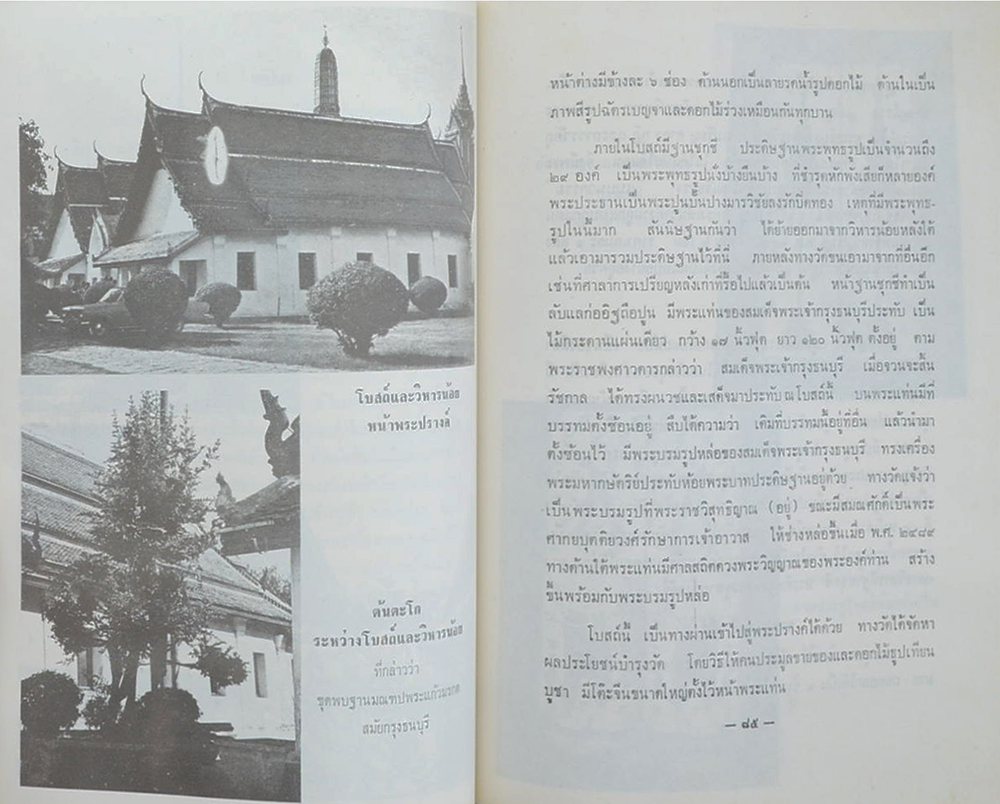 โบสถ์และวิหารน้อย
หน้าพระปรางค์
ต้นตะโก
ระหว่างโบสถ์และวิหารน้อย
ที่กล่าวว่า
ขุดพบฐานมณฑปพระแก้วมรกต
สมัยกรุงธนบุรี
หน้าต่างมีข้างละ ๖ ช่อง ด้านนอกเป็นลายรดน้ำรูปดอกไม้ ด้านในเป็น
ภาพสีรูปฉัตรเบญจาและดอกไม้ร่วงเหมือนกันทุกบาน
ภายในโบสถ์มีฐานชุกชี ประดิษฐานพระพุทธรูปเป็นจำนวนถึง
๒๙ องค์ เป็นพระพุทธรูปนั่งบ้างยืนบ้าง ที่ชำรุดหักพังเสียก็หลายองค์
พระประธานเป็นพระปูนปั้นปางมารวิชัยลงรักปิดทอง เหตุที่มีพระพุทธ-
รูปในนี้มาก สันนิษฐานกันว่า ได้ย้ายออกมาจากวิหารน้อยหลังใต้
แล้วเอามารวมประดิษฐานไว้ที่นี่ ภายหลังทางวัดขนเอามาจากที่อื่นอีก
เช่นที่ศาลาการเปรียญหลังเก่าที่รื้อไปแล้วเป็นต้น หน้าฐานชุกชีทำเป็น
ลับแลก่ออิฐถือปูน มีพระแท่นของสมเด็จพระเจ้ากรุงธนบุรีประทับ เป็น
ไม้กระดานแผ่นเดียว กว้าง ๑๗ นิ้วฟุต ยาว ๑๒๐ นิ้วฟุต ตั้งอยู่ ตาม
พระราชพงศาวดารกล่าวว่า สมเด็จพระเจ้ากรุงธนบุรี เมื่อจวนจะสิ้น
รัชกาล ได้ทรงผนวชและเสด็จมาประทับ ณ โบสถ์นี้ บนพระแท่นมีที่
บรรทมตั้งซ้อนอยู่ สืบได้ความว่า เดิมที่บรรทมนี้อยู่ที่อื่น แล้วนำมา
ตั้งซ้อนไว้ มีพระบรมรูปหล่อของสมเด็จพระเจ้ากรุงธนบุรี ทรงเครื่อง
พระมหากษัตริย์ประทับห้อยพระบาทประดิษฐานอยู่ด้วย ทางวัดแจ้งว่า
เป็นพระบรมรูปที่พระราชวิสุทธิญาณ (อยู่) ขณะมีสมณศักดิ์เป็นพระ
ศากยบุตติยวงศ์รักษาการเจ้าอาวาส ให้ช่างหล่อขึ้นเมื่อ พ.ศ. ๒๔๘๙
ทางด้านใต้พระแท่นมีศาลสถิตดวงพระวิญญาณของพระองค์ท่าน สร้าง
ขึ้นพร้อมกับพระบรมรูปหล่อ
โบสถ์นี้ เป็นทางผ่านเข้าไปสู่พระปรางค์ได้ด้วย ทางวัดได้จัดหา
ผลประโยชน์บำรุงวัด โดยวิธีให้คนประมูลขายของและดอกไม้ธูปเทียน
บูชา มีโต๊ะจีนขนาดใหญ่ตั้งไว้หน้าพระแท่น
— ๘๕ —